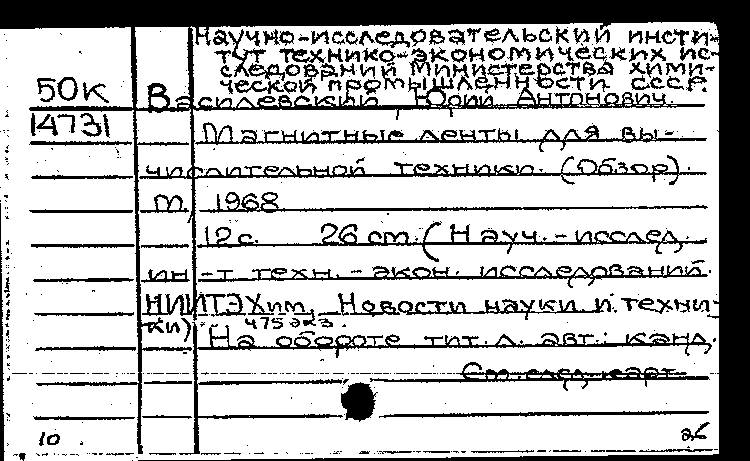 Научно-исследовательский инсти-
тут технико-экономических ис-
следований Министерства хими-
ческой промышленности СССР.
50К Василевский, Юрий Антонович.
14731 Магнитные ленты для вы-
числительной техники. (Обзор).
М, 1968
12 с. 26 см. (Науч.-исслед.
ин-т техн.-экон. исследований
НИИТЭХим, Новости науки и техни-
ки). 475 экз.
На обороте тит. л. авт.: канд.
См. след. карт.
10 26